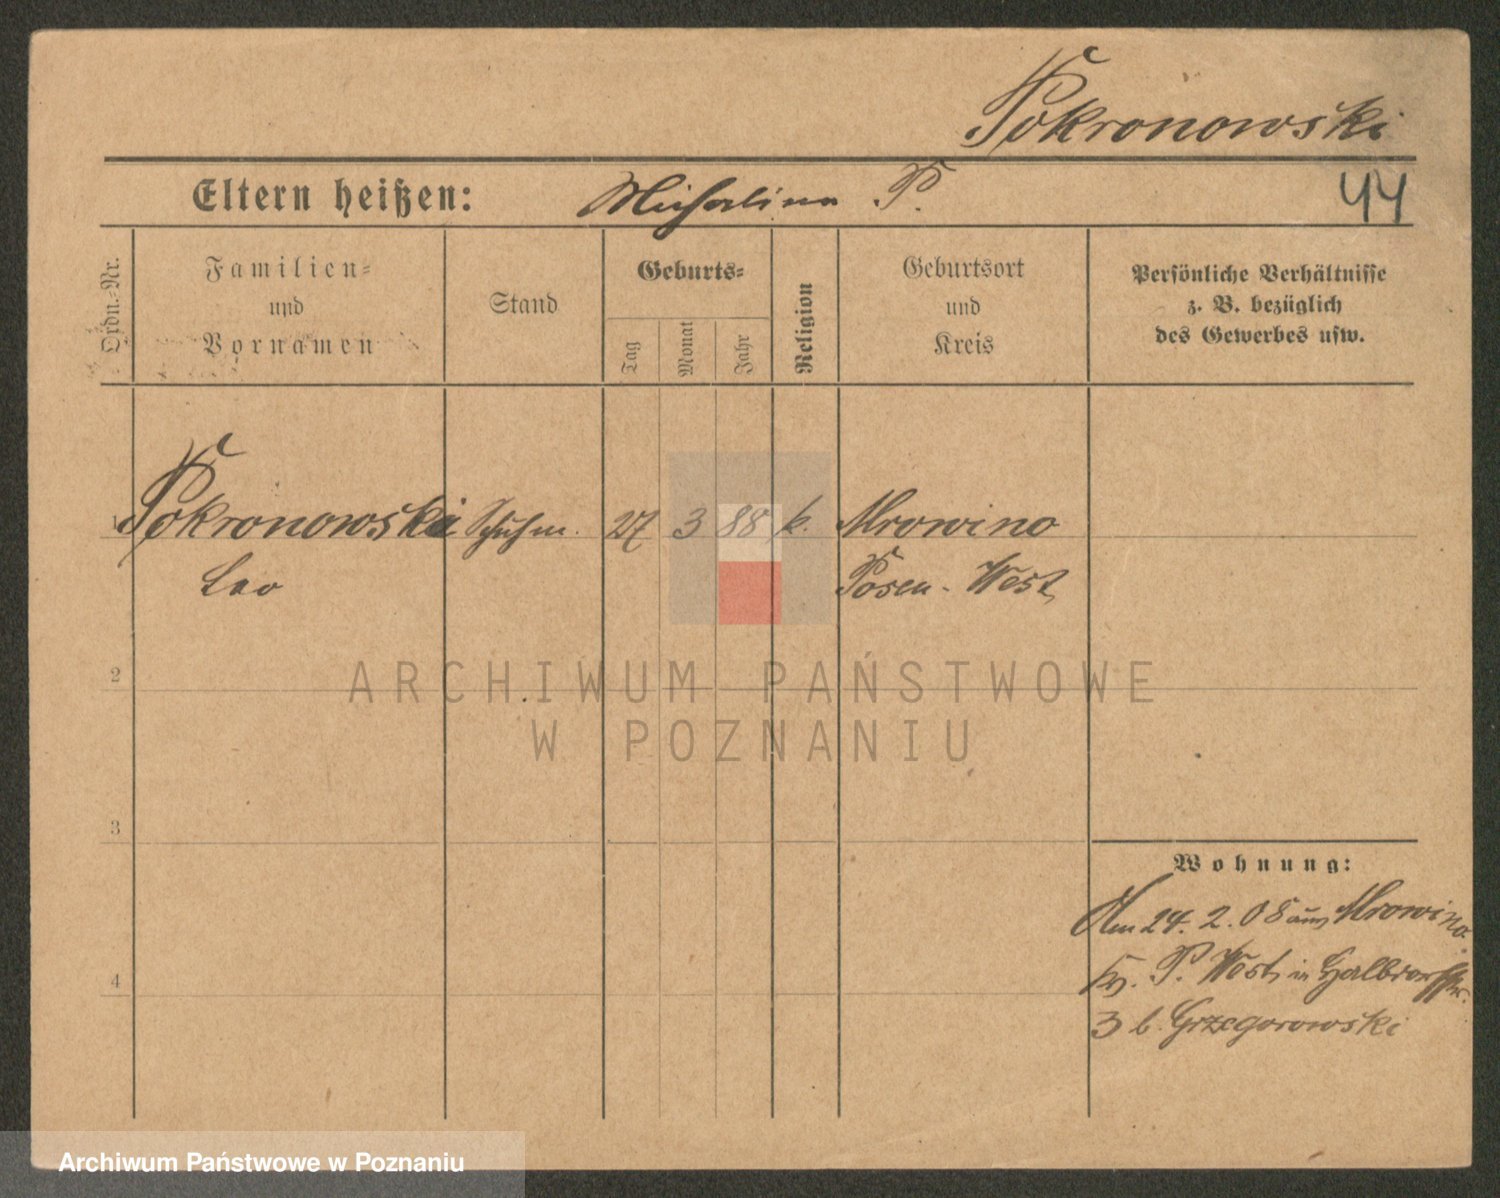 Pokronowski
Eltern heißen: Michalina P.
44
Ordn.-Nr.
Familien-
und
Vornamen
Stand
Geburts-
Tag
Monat
Jahr
Religion
Geburtsort
und
Kreis
Persönliche Verhältnisse
z. B. bezüglich
des Gewerbes usw.
1 Pokronowski Schuhm. 27 3 88 k. Mrowino
Leo Posen-West
2
3
4
ARCHIWUM PAŃSTWOWE
W POZNANIU
Wohnung:
Am 24. 2. 08 aus Mrowino
Kr. P. West in Halbdorfstr.
3 b. Grzegorowski
Archiwum Państwowe w Poznaniu